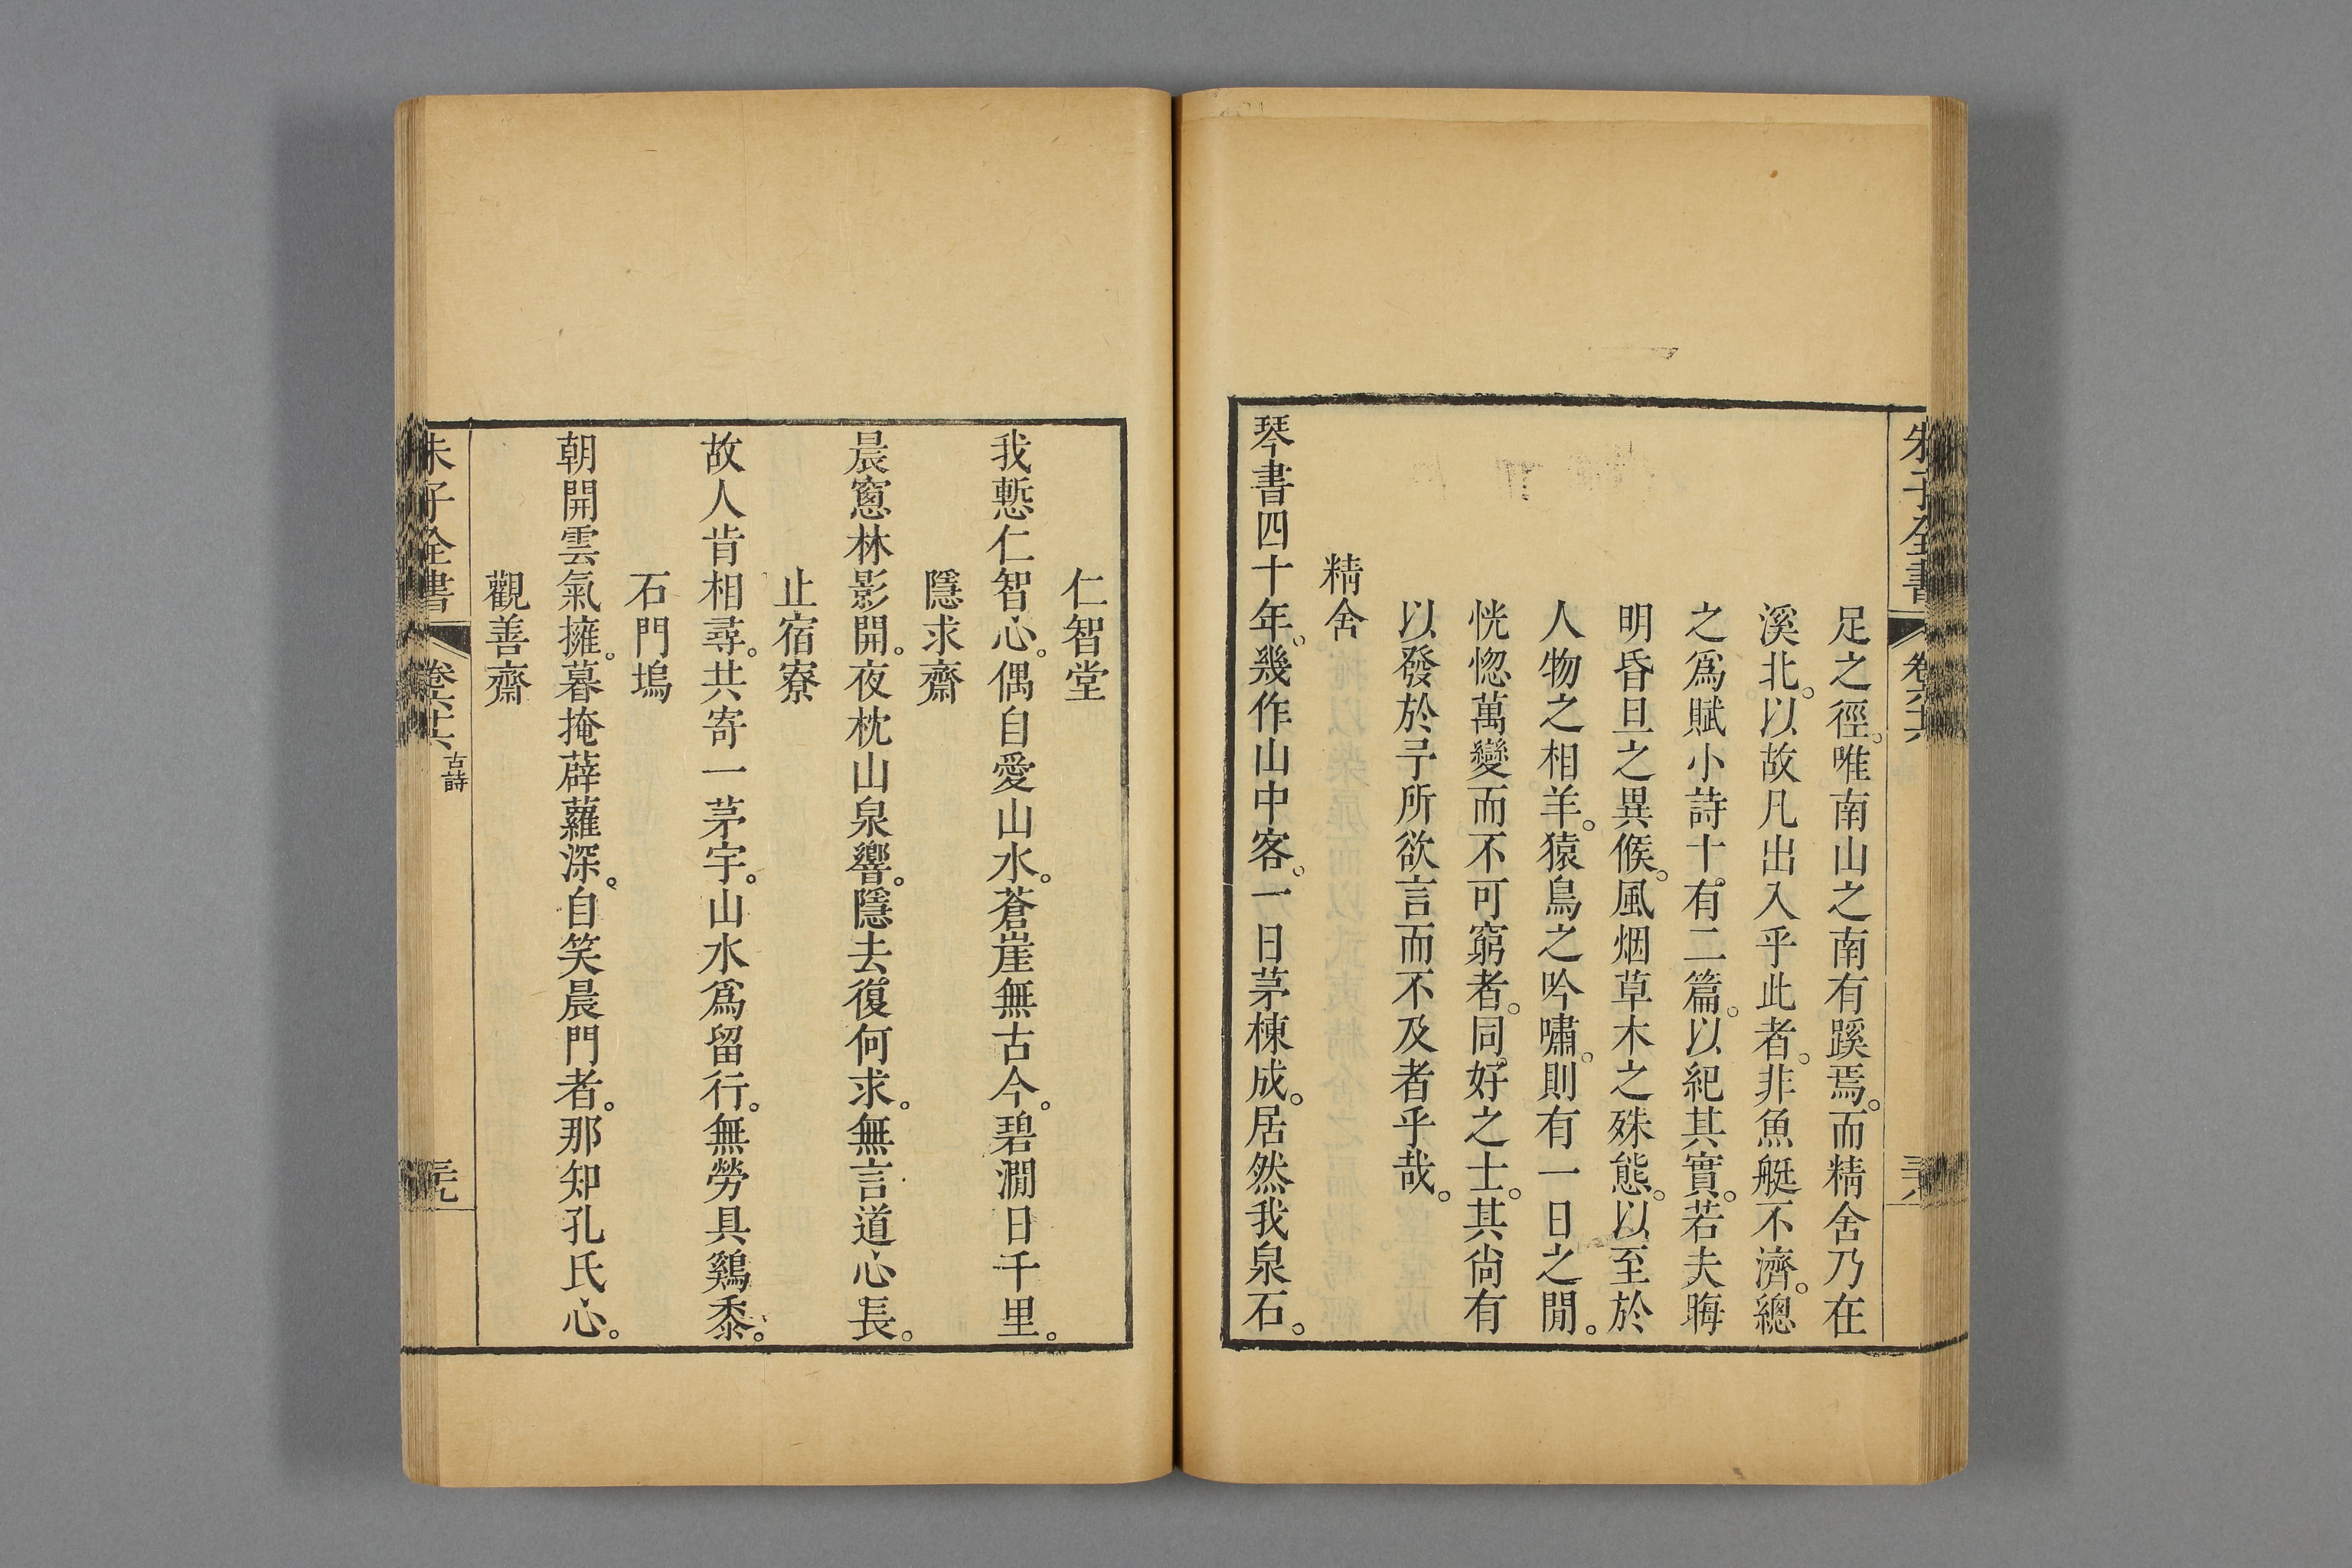 朱子全書 卷六十六
足之徑。唯南山之南有蹊焉。而精舍乃在
溪北。以故凡出入乎此者。非魚艇不濟。總
之爲賦小詩十。有二篇。以紀其實。若夫晦
明昏旦之異候。風烟草木之殊態。以至於
人物之相羊。猿鳥之吟嘯。則有一日之閒。
恍惚萬變而不可窮者。同好之士。其尙有
以發於予所欲言而不及者乎哉。
精舍
琴書四十年。幾作山中客。一日茅棟成。居然我泉石。
仁智堂
我慙仁智心。偶自愛山水。蒼崖無古今。碧澗日千里。
隱求齋
晨窻林影開。夜枕山泉響。隱去復何求。無言道心長。
止宿寮
故人肯相尋。共寄一茅宇。山水爲留行。無勞具鷄黍。
石門塢
朝開雲氣擁。暮掩薜蘿深。自笑晨門者。那知孔氏心。
觀善齋
朱子全書 卷六十六 古詩